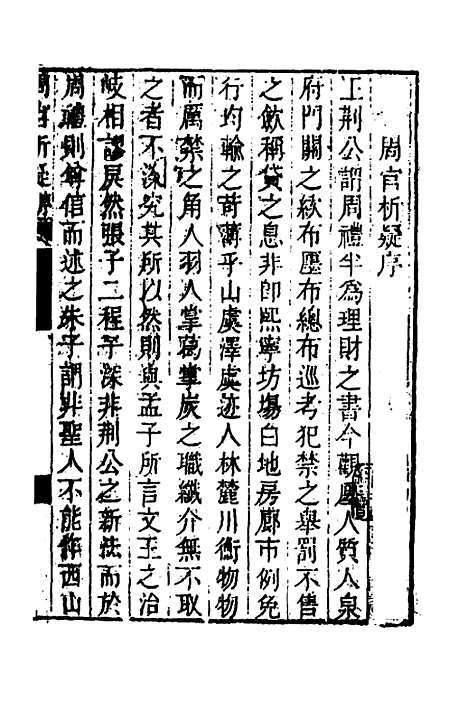 周官析疑序
王荆公謂周禮半為理財之書今觀廛人質人泉
府門關之紋布廛布總布巡考犯禁之舉罰不售
之斂稱貸之息非卽熙寧坊塲白地房廊市例免
行均輸之苛薾乎山虞澤虞迹人林麓川衡物物
而厲禁之角人羽人掌葛掌炭之職纎介無不取
之者不深究其所以然則與孟子所言文王之治
岐相謬戾然張子二程子深非荆公之新法而於
周禮則尊信而述之朱子謂非聖人不能作西山
周官析疑序